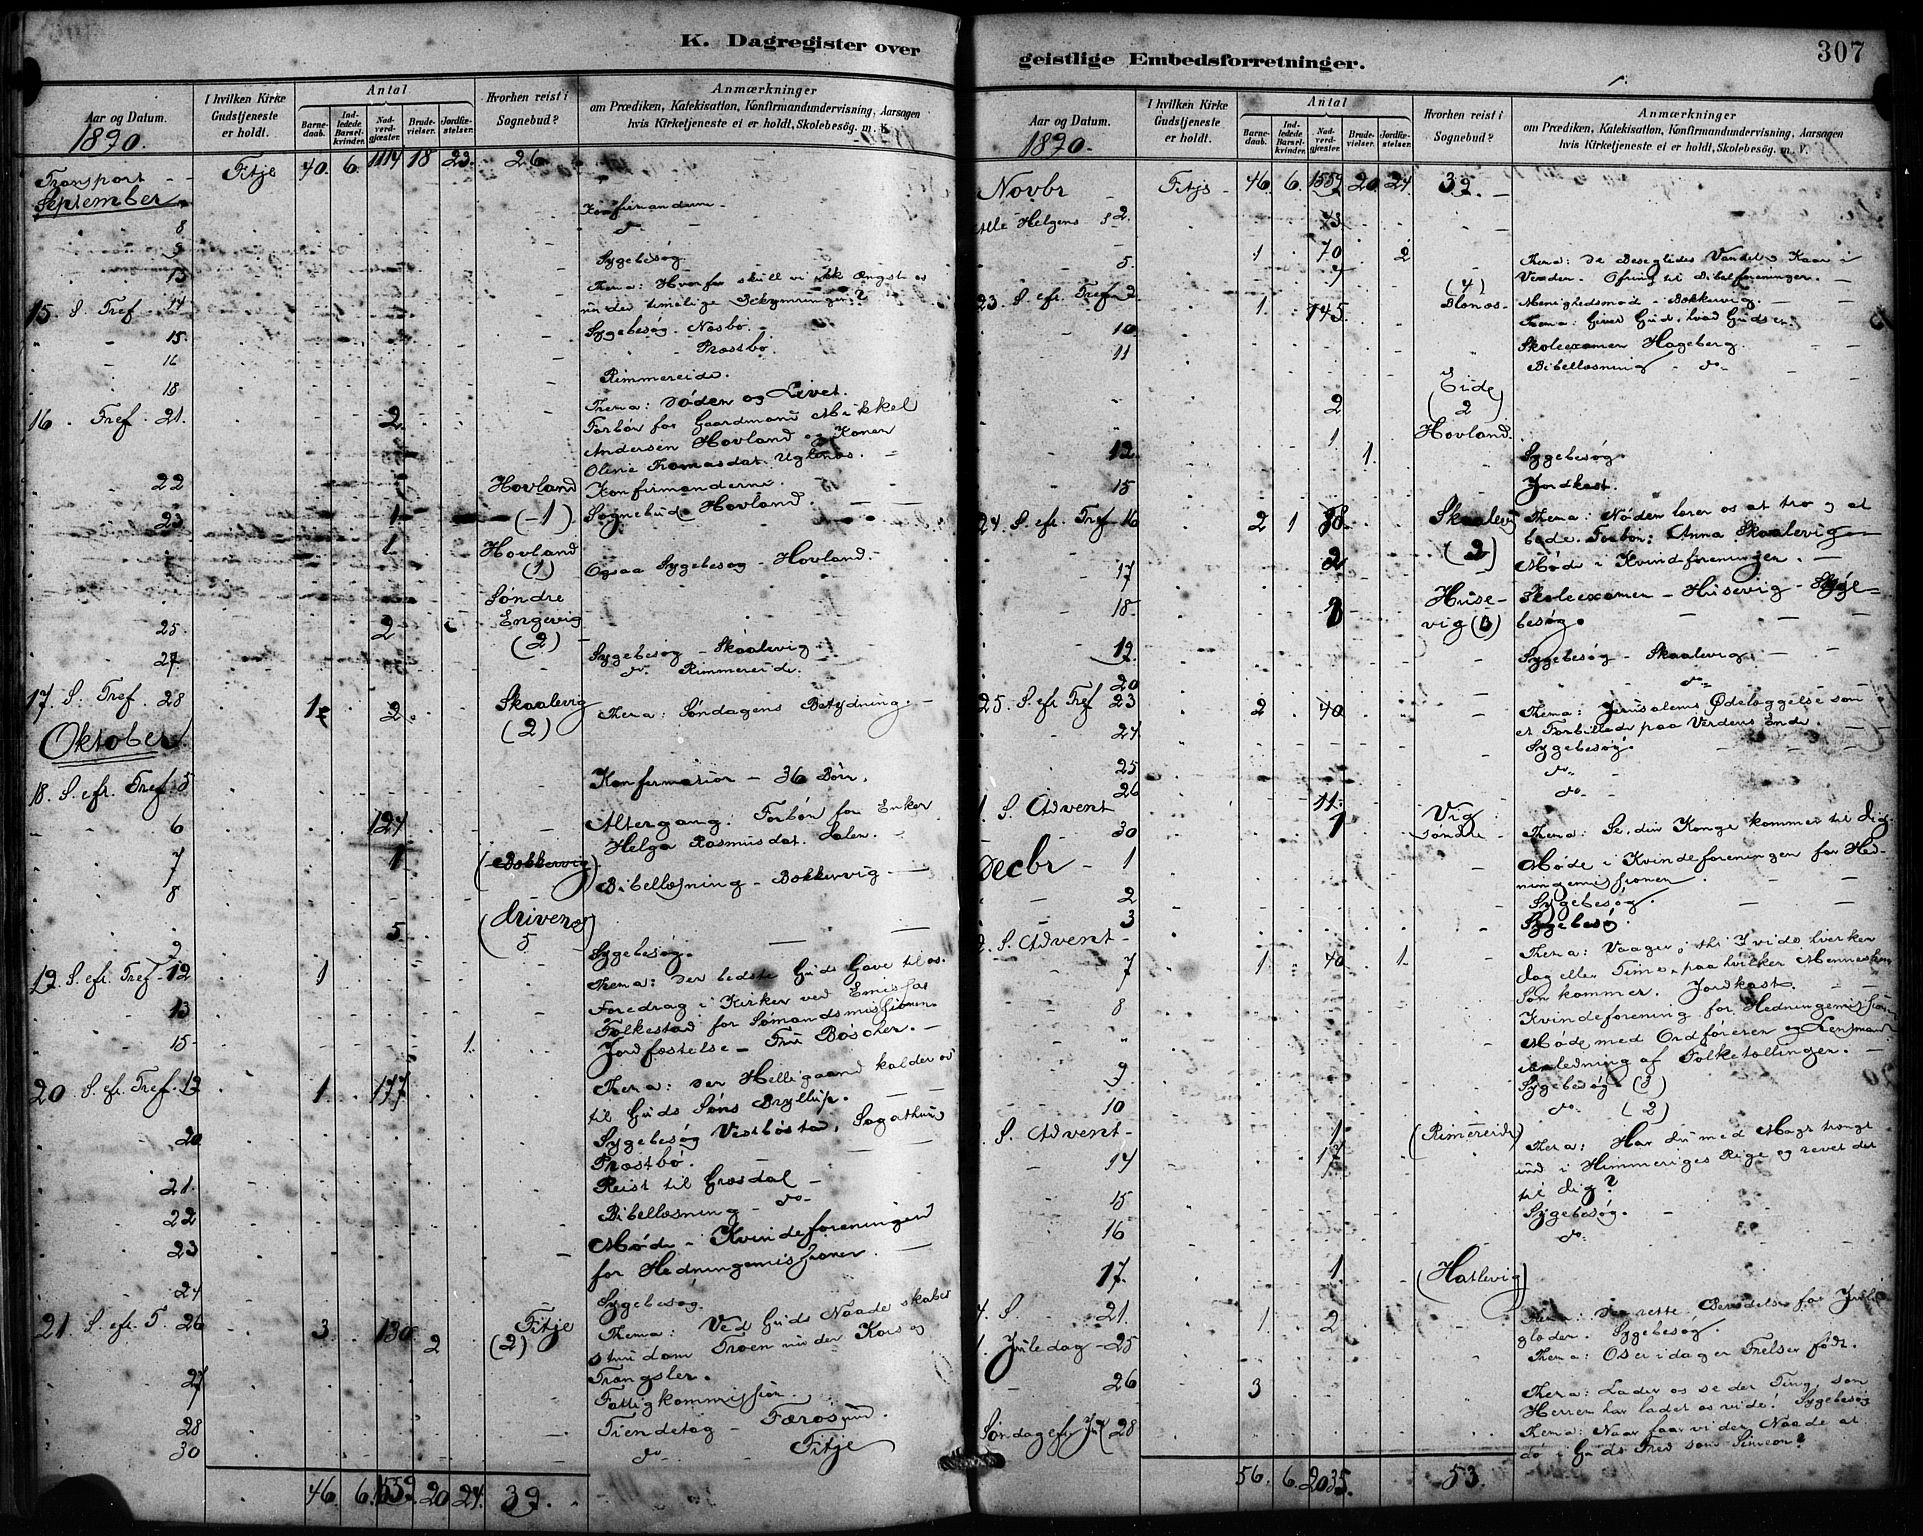 K. Dagregister over
Aar og Datum.
1890.
I hvilken Kirke Gudstjeneste er holdt.
Antal
Barnedaab.
Indledede Barselkvinder.
Nadverdgjæster.
Brudevielser.
Jordfæstelser.
Hvorhen reist i Sognebud?
Anmærkninger
om Prædiken, Katekisation, Konfirmandundervisning, Aarsagen
hvis Kirketjeneste ei er holdt, Skolebesøg. m. V.
Transport - Fitje 40. 6. 1114 18 23. 26
September
8 Konfirmanderne -
9 do -
13 Sygebesøg.
15 S. Tref. 14 Thema: Hvorfor skull vi ikk ængst os
under timelige Bekymringer?
15. Sygebesøg. Næsbø.
16 " Præstbø.
18 Rimmereide.
16. Tref. 21. 2. Thema: Døden og Livet.
Forbøn for Gaardmand Mikkel
Andersen Hovland og Konen
Olene Tomasdat. Uglenæs.
22 1 Hovland Konfirmanderne.
23 1 (1) Sognebud Hovland.
1 Hovland
(1) Ogsaa Sygebesøg - Hovland -
25. 2 Søndre
Engevig
(2)
27 Sygebesøg - Skaalevig
do. Rimmereide.
17. S. Tref. 28 1 2. Skaalevig
(2) Thema: Søndagens Betydning. -
Oktober
18. S. efr. Tref. 5 Konfirmation - 36 Børn.
6 124 Altergang. Forbøn for Enken
Helga Rasmusdat. Dalen.
7 1 (Bokkervig)
8 Bibellæsning - Bokkervig
5. (Drivenes)
5
9 Sygebesøg.
19. S. efr. Tref. 12 1 Thema: Den bedste Guds Gave til os.
13 Foredrag i Kirken ved Emissær
Folkestad for Sømandsmissionen.
15 1. Jordfæstelse - Fru Böscher. -
20 S. efr. Tref. 19 1. 177 Thema: Den Helligaand kalder os
til Guds Søns Bryllup.
20 Sygebesøg Vestbøstad, Sagathun
Præstbø.
21. Reist til Græsdal -
22 Bibellæsning - do -
23 Møde - Kvindeforeningen
for Hedningemissionen.
24 Sygebesøg.
21. S. efr. T. 26 3. 130 2 Fitje
(2) Thema: Ved Guds Naade skabes
stundom Troen under Kors og
Trængsler.
27 Fattigkommission.
28 Tiendetog - Færøsund.
30 do. - Fitje
46. 6. 1559. 20 24. 39.
geistlige Embedsforretninger.
307
Aar og Datum.
1890.
I hvilken Kirke Gudstjeneste er holdt.
Antal
Barnedaab.
Indledede Barselkvinder.
Nadverdgjæster.
Brudevielser.
Jordfæstelser.
Hvorhen reist i Sognebud?
Anmærkninger
om Prædiken, Katekisation, Konfirmandundervisning, Aarsagen
hvis Kirketjeneste ei er holdt, Skolebesøg. m. V.
Novbr Fitje - 46. 6. 1559 20. 24 39. -
Alle Helgens S 2.
5. 1 70 2 Thema: De Beseglides Vandel & Kaar i
Verden. Ofring til Bibelforeningen.
23. S. efr. Tref. 9 1. 145. (4)
Blænes - Menighedsmød - Bokkervig.
Thema: Giver Gud, hvad Guds er.
10. Skoleexamen Hageberg.
11 Bibellæsning - do -
2 Eide
(2)
1 Hovland.
12. 1. Sygebesøg.
15 Jordkast.
24. S. efr. Tref. 16 2 1 Skaalevig
(2) Thema: Nøden lærer os at tro og at
bede. Forbøn: Anna Skaalevig -
2 Møde i Kvindforeningen. -
17
18. Husevig Skoleexamen - Husevig - Sygebesøg.
19. Sygebesøg - Skaalevig. -
20 do -
25. S. efr. Tref 23 2 40 Thema: Jerusalems Ødelæggelse som
et Forbillede paa Verdens Ende.
24 Sygebesøg.
25 do -
26 do -
1. S. Advent 11.
30 1 Vig
søndre Thema: Se, din Konge kommer til dig.
Decbr - 1 Møde i Kvindeforeningen for Hedningemissionen.
2 Sygebesøg.
3 Sygebesøg
2. S. Advent -
7 1 40 1. Thema: Vaager, thi I vide hverken
Dag eller Time, paa hvilken Menneskens
Søn kommer. Jordkast.
8 Kvindeforening for Hedningemissionen
" Møde med Ordføreren og Lensmand
i Anledning af Folketællingen. -
9 Sygebesøg. (3)
10 do. (2)
S. Advent - 1 (Rimereide)
14 17 Thema: Har du med Magt trængt
ind i Himmeriges Rige og revet det
til dig?
15 Sygebesøg.
16 do -
17. 1. (Hatlevig)
4. S. 21. 1 2 Thema: Den rette Beredelse for Juleglæden. Sygebesøg.
1. Juledag - 25 Thema: Os er idag en Frelser født.
26 3 Thema: Lader os se den Ting, som
Herren har ladet os vide! Sygebesøg
Søndag efr. Jul 28 Thema: Naar faar vi den Naade at
dø i Guds Fred som Simeon?
56. 6. 2035. 53.